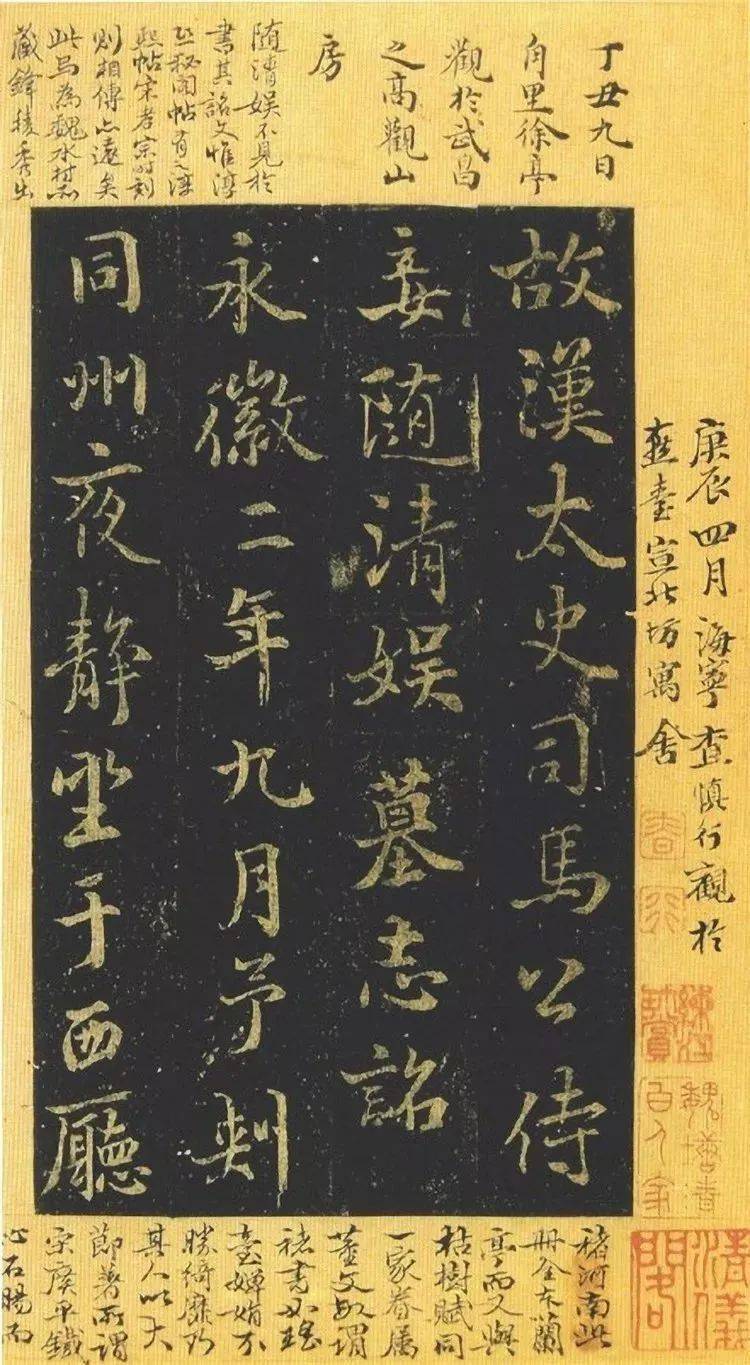 庚辰四月海寧查慎行觀於
燕臺宣北坊寓舍
丁丑九日
角里徐亭
觀於武昌
之高觀山
房
随清娱不見於
書其詺文惟淳
熙秘閣帖有之淳
熙帖宋孝宗時刻
則相傳亦遠矣
為魏水村
藏鋒稜秀出
故漢太史司馬公侍
妾随清娱墓志詺
永徽二年九月予刺
同州夜静坐于西廳
褚河南此
冊全本蘭
亭而又與
枯樹賦同
一家眷属
蓋文敏謂
褚書如瑤
臺嬋娟不
勝綺靡乃
其人以大
節著所謂
宋廣平鐵
心石腸而
清儀閣